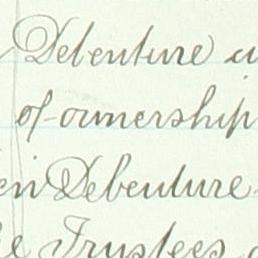 Debenture
of ownership
Debenture
Trustees